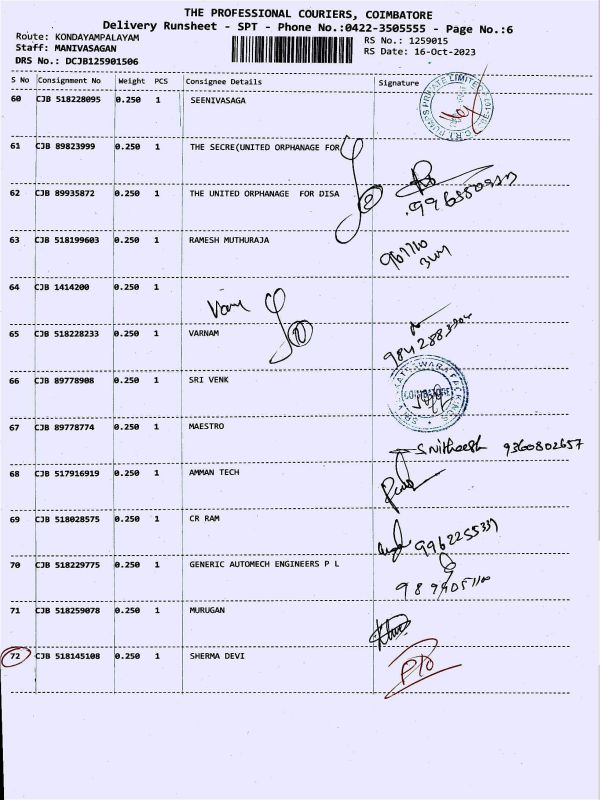 THE PROFESSIONAL COURIERS, COIMBATORE
Delivery Runsheet - SPT - Phone No.:0422-3505555 - Page No.:6
Route: KONDAYAMPALAYAM
Staff: MANIVASAGAN
DRS No.: DCJB125901506
RS No.: 1259015
RS Date: 16-Oct-2023
S No Consignment No Weight PCS Consignee Details Signature
60 CJB 518228095 0.250 1 SEENIVASAGA
61 CJB 89823999 0.250 1 THE SECRE(UNITED ORPHANAGE FOR
62 CJB 89935872 0.250 1 THE UNITED ORPHANAGE FOR DISA
63 CJB 518199603 0.250 1 RAMESH MUTHURAJA
64 CJB 1414200 0.250 1
65 CJB 518228233 0.250 1 VARNAM
9842883904
66 CJB 89778908 0.250 1 SRI VENK
COIMBATORE
67 CJB 89778774 0.250 1 MAESTRO
S Nitheesh 9360802657
68 CJB 517916919 0.250 1 AMMAN TECH
69 CJB 518028575 0.250 1 CR RAM
9962255337
70 CJB 518229775 0.250 1 GENERIC AUTOMECH ENGINEERS P L
71 CJB 518259078 0.250 1 MURUGAN
72 CJB 518145108 0.250 1 SHERMA DEVI
PTO